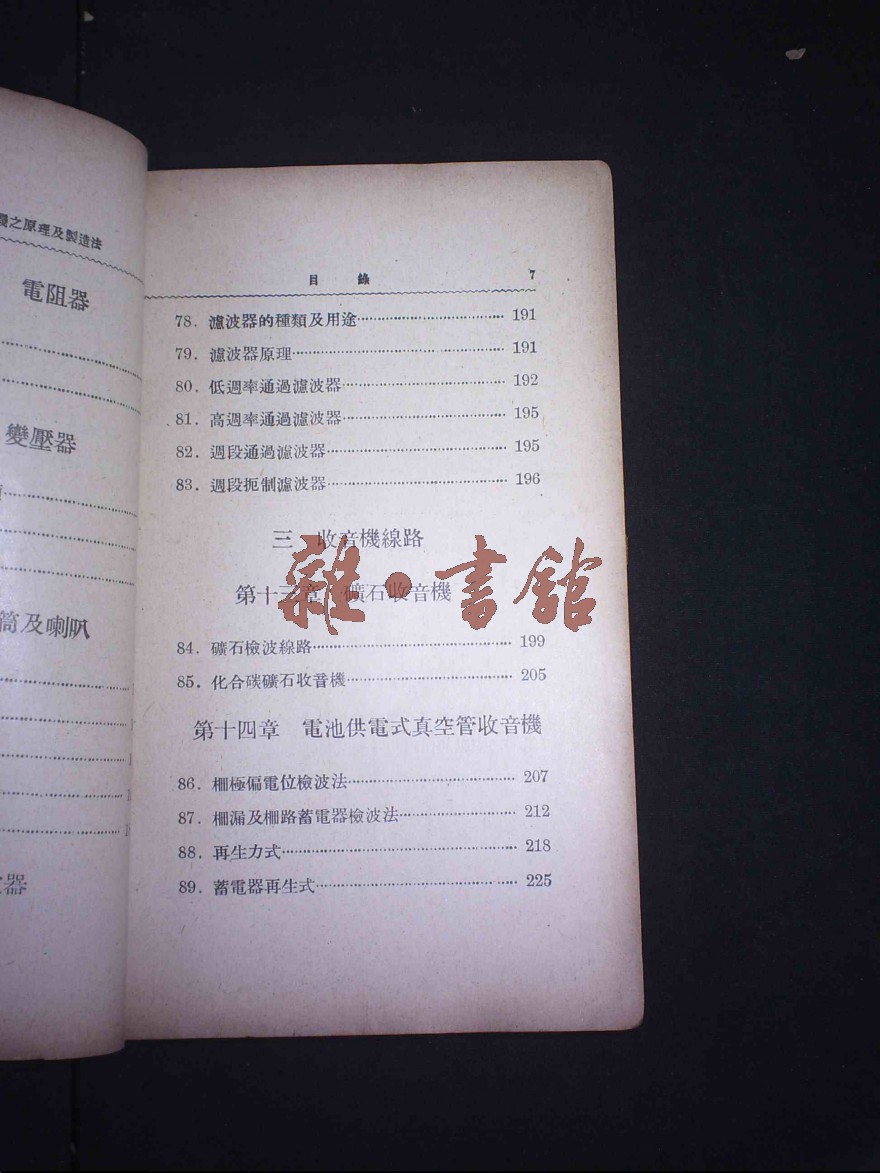 機之原理及製造法
電阻器
變壓器
筒及喇叭
器
目 錄 7
78. 濾波器的種類及用途 191
79. 濾波器原理 191
80. 低週率通過濾波器 192
81. 高週率通過濾波器 195
82. 週段通過濾波器 195
83. 週段扼制濾波器 196
三 收音機線路
第十三章 礦石收音機
84. 礦石檢波線路 199
85. 化合碳礦石收音機 205
第十四章 電池供電式真空管收音機
86. 柵極偏電位檢波法 207
87. 柵漏及柵路蓄電器檢波法 212
88. 再生力式 218
89. 蓄電器再生式 225
雜·書館